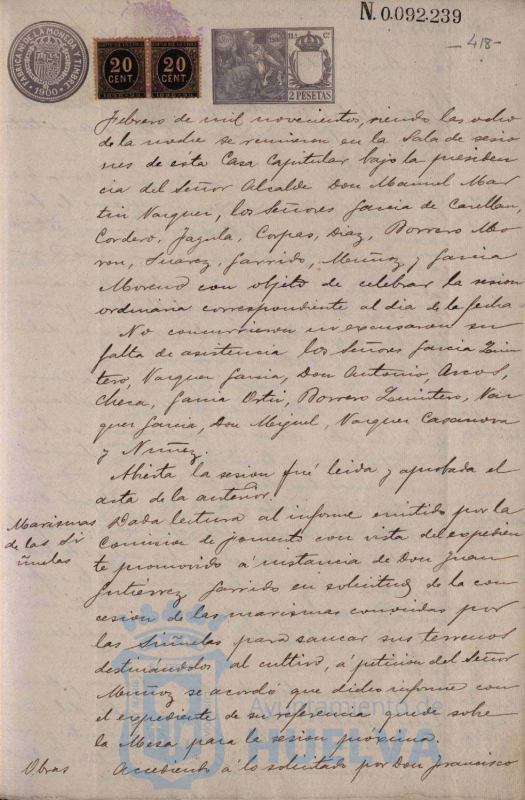 N. 0.092.239
FABRICA N. DE LA MONEDA Y TIMBRE
1900
20 CENT.
20 CENT.
11.ª Cl.
2 PESETAS
418
Febrero de mil novecientos, siendo las ocho
de la noche se reunieron en la Sala de sesio
nes de esta Casa Capitular bajo la presiden
cia del Señor Alcalde Don Manuel Mar
tin Vazquez, los Señores Garcia de
Cordero, Jagula, Corpas, Diaz, Borrero Mo
ron, Suarez, Garrido, Muñoz y Garcia
Moreno con objeto de celebrar la sesion
ordinaria correspondiente al dia de la fecha
No concurrieron ni excusaron su
falta de asistencia los Señores Garcia Quin
tero, Vazquez Garcia, Don Antonio, Arcos,
Checa, Garcia Ortiz, Borrero Quintero, Vaz
quez Garcia, Don Miguel, Vazquez Casanova
y Nuñez.
Abierta la sesion fué leida y aprobada el
acta de la anterior.
Marismas
de las Si
ñuelas
Dada lectura al informe emitido por la
Comision de fomento con vista del expedien
te promovido á instancia de Don Juan
Gutierrez Garrido en solicitud de la con
cesion de las marismas conocidas por
las Siñuelas para sanear sus terrenos
destinándolos al cultivo, á peticion del Señor
Muñoz se acordó que dicho informe con
el expediente de su referencia quede sobre
la Mesa para la sesion próxima.
Obras
Accediendo á lo solicitado por Don Francisco
Ayuntamiento de
HUELVA